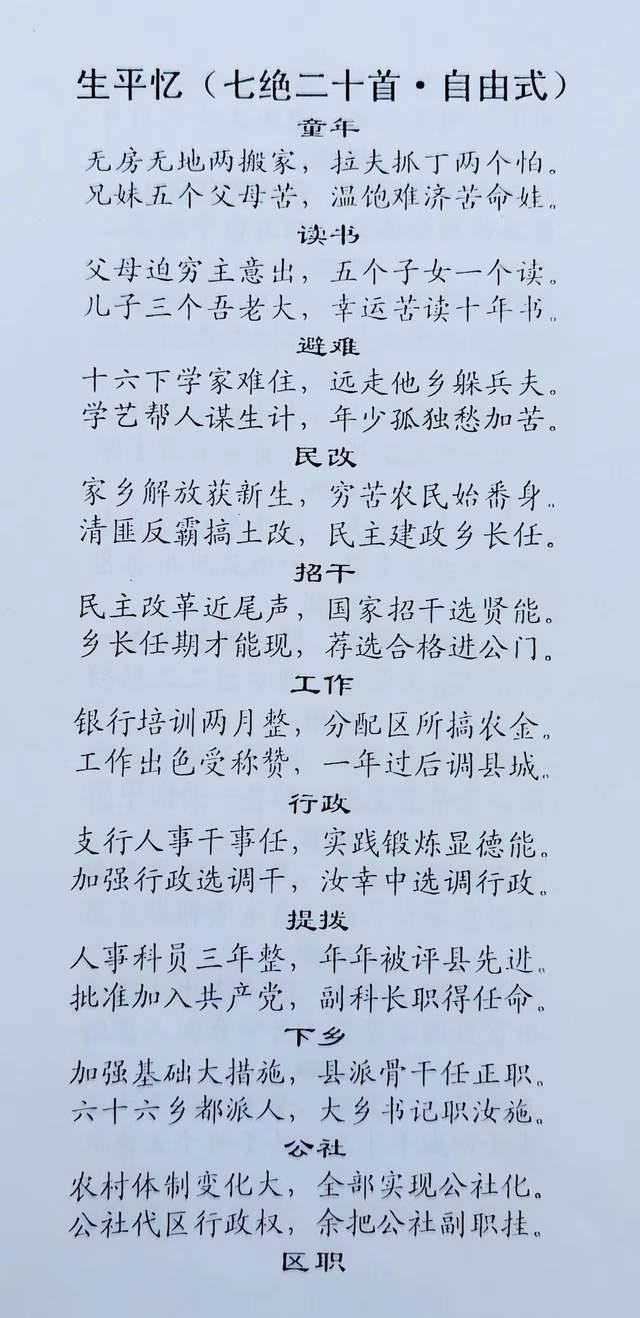 生平忆（七绝二十首·自由式）
童年
无房无地两搬家，拉夫抓丁两个怕。
兄妹五个父母苦，温饱难济苦命娃。
读书
父母迫穷主意出，五个子女一个读。
儿子三个吾老大，幸运苦读十年书。
避难
十六下学家难住，远走他乡躲兵夫。
学艺帮人谋生计，年少孤独愁加苦。
民改
家乡解放获新生，穷苦农民始番身。
清匪反霸搞土改，民主建政乡长任。
招干
民主改革近尾声，国家招干选贤能。
乡长任期才能现，荐选合格进公门。
工作
银行培训两月整，分配区所搞农金。
工作出色受称赞，一年过后调县城。
行政
支行人事干事任，实践锻炼显德能。
加强行政选调干，汝幸中选调行政。
提拨
人事科员三年整，年年被评县先进。
批准加入共产党，副科长职得任命。
下乡
加强基础大措施，县派骨干任正职。
六十六乡都派人，大乡书记职汝施。
公社
农村体制变化大，全部实现公社化。
公社代区行政权，余把公社副职挂。
区职